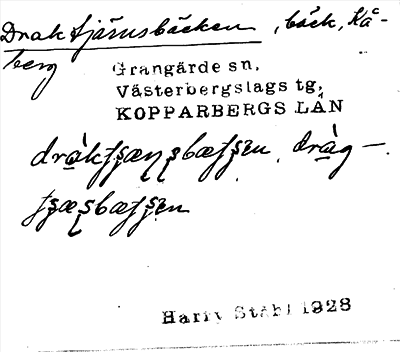 Draktjärnsbäcken, bäck, Kå-
berg
Grangärde sn,
Västerbergslags tg,
KOPPARBERGS LÄN
dràktʂæɳʂbætʂɛn, dràg-
tʂæʂbætʂɛn
Harry Ståhl 1928